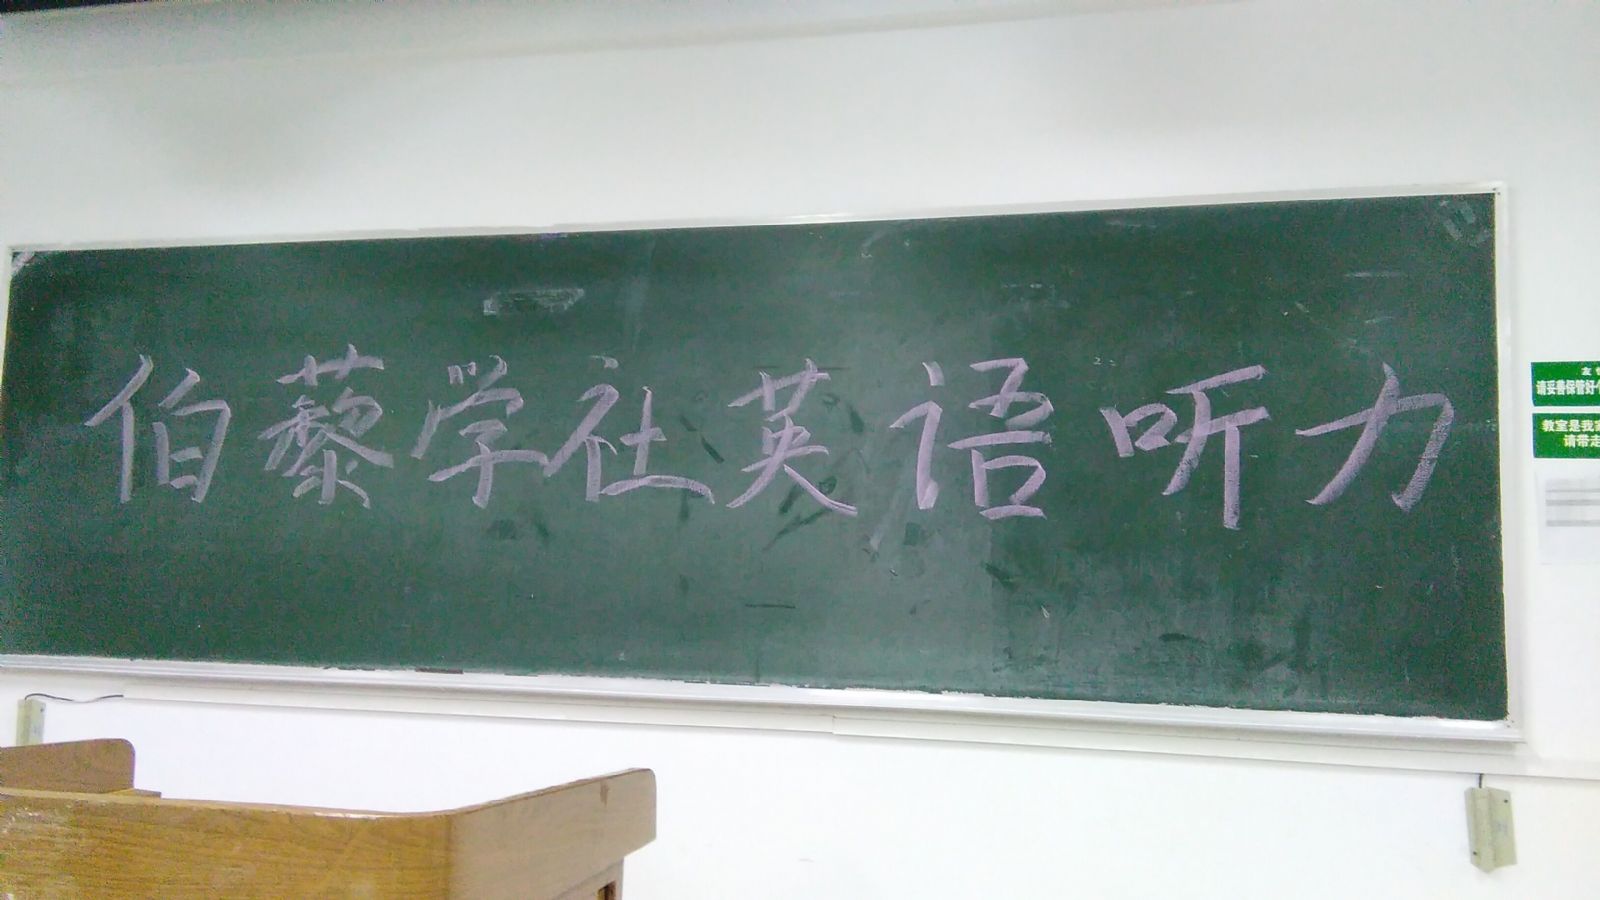 伯藜学社英语听力
友
请妥善保管好
教室是我
请带走